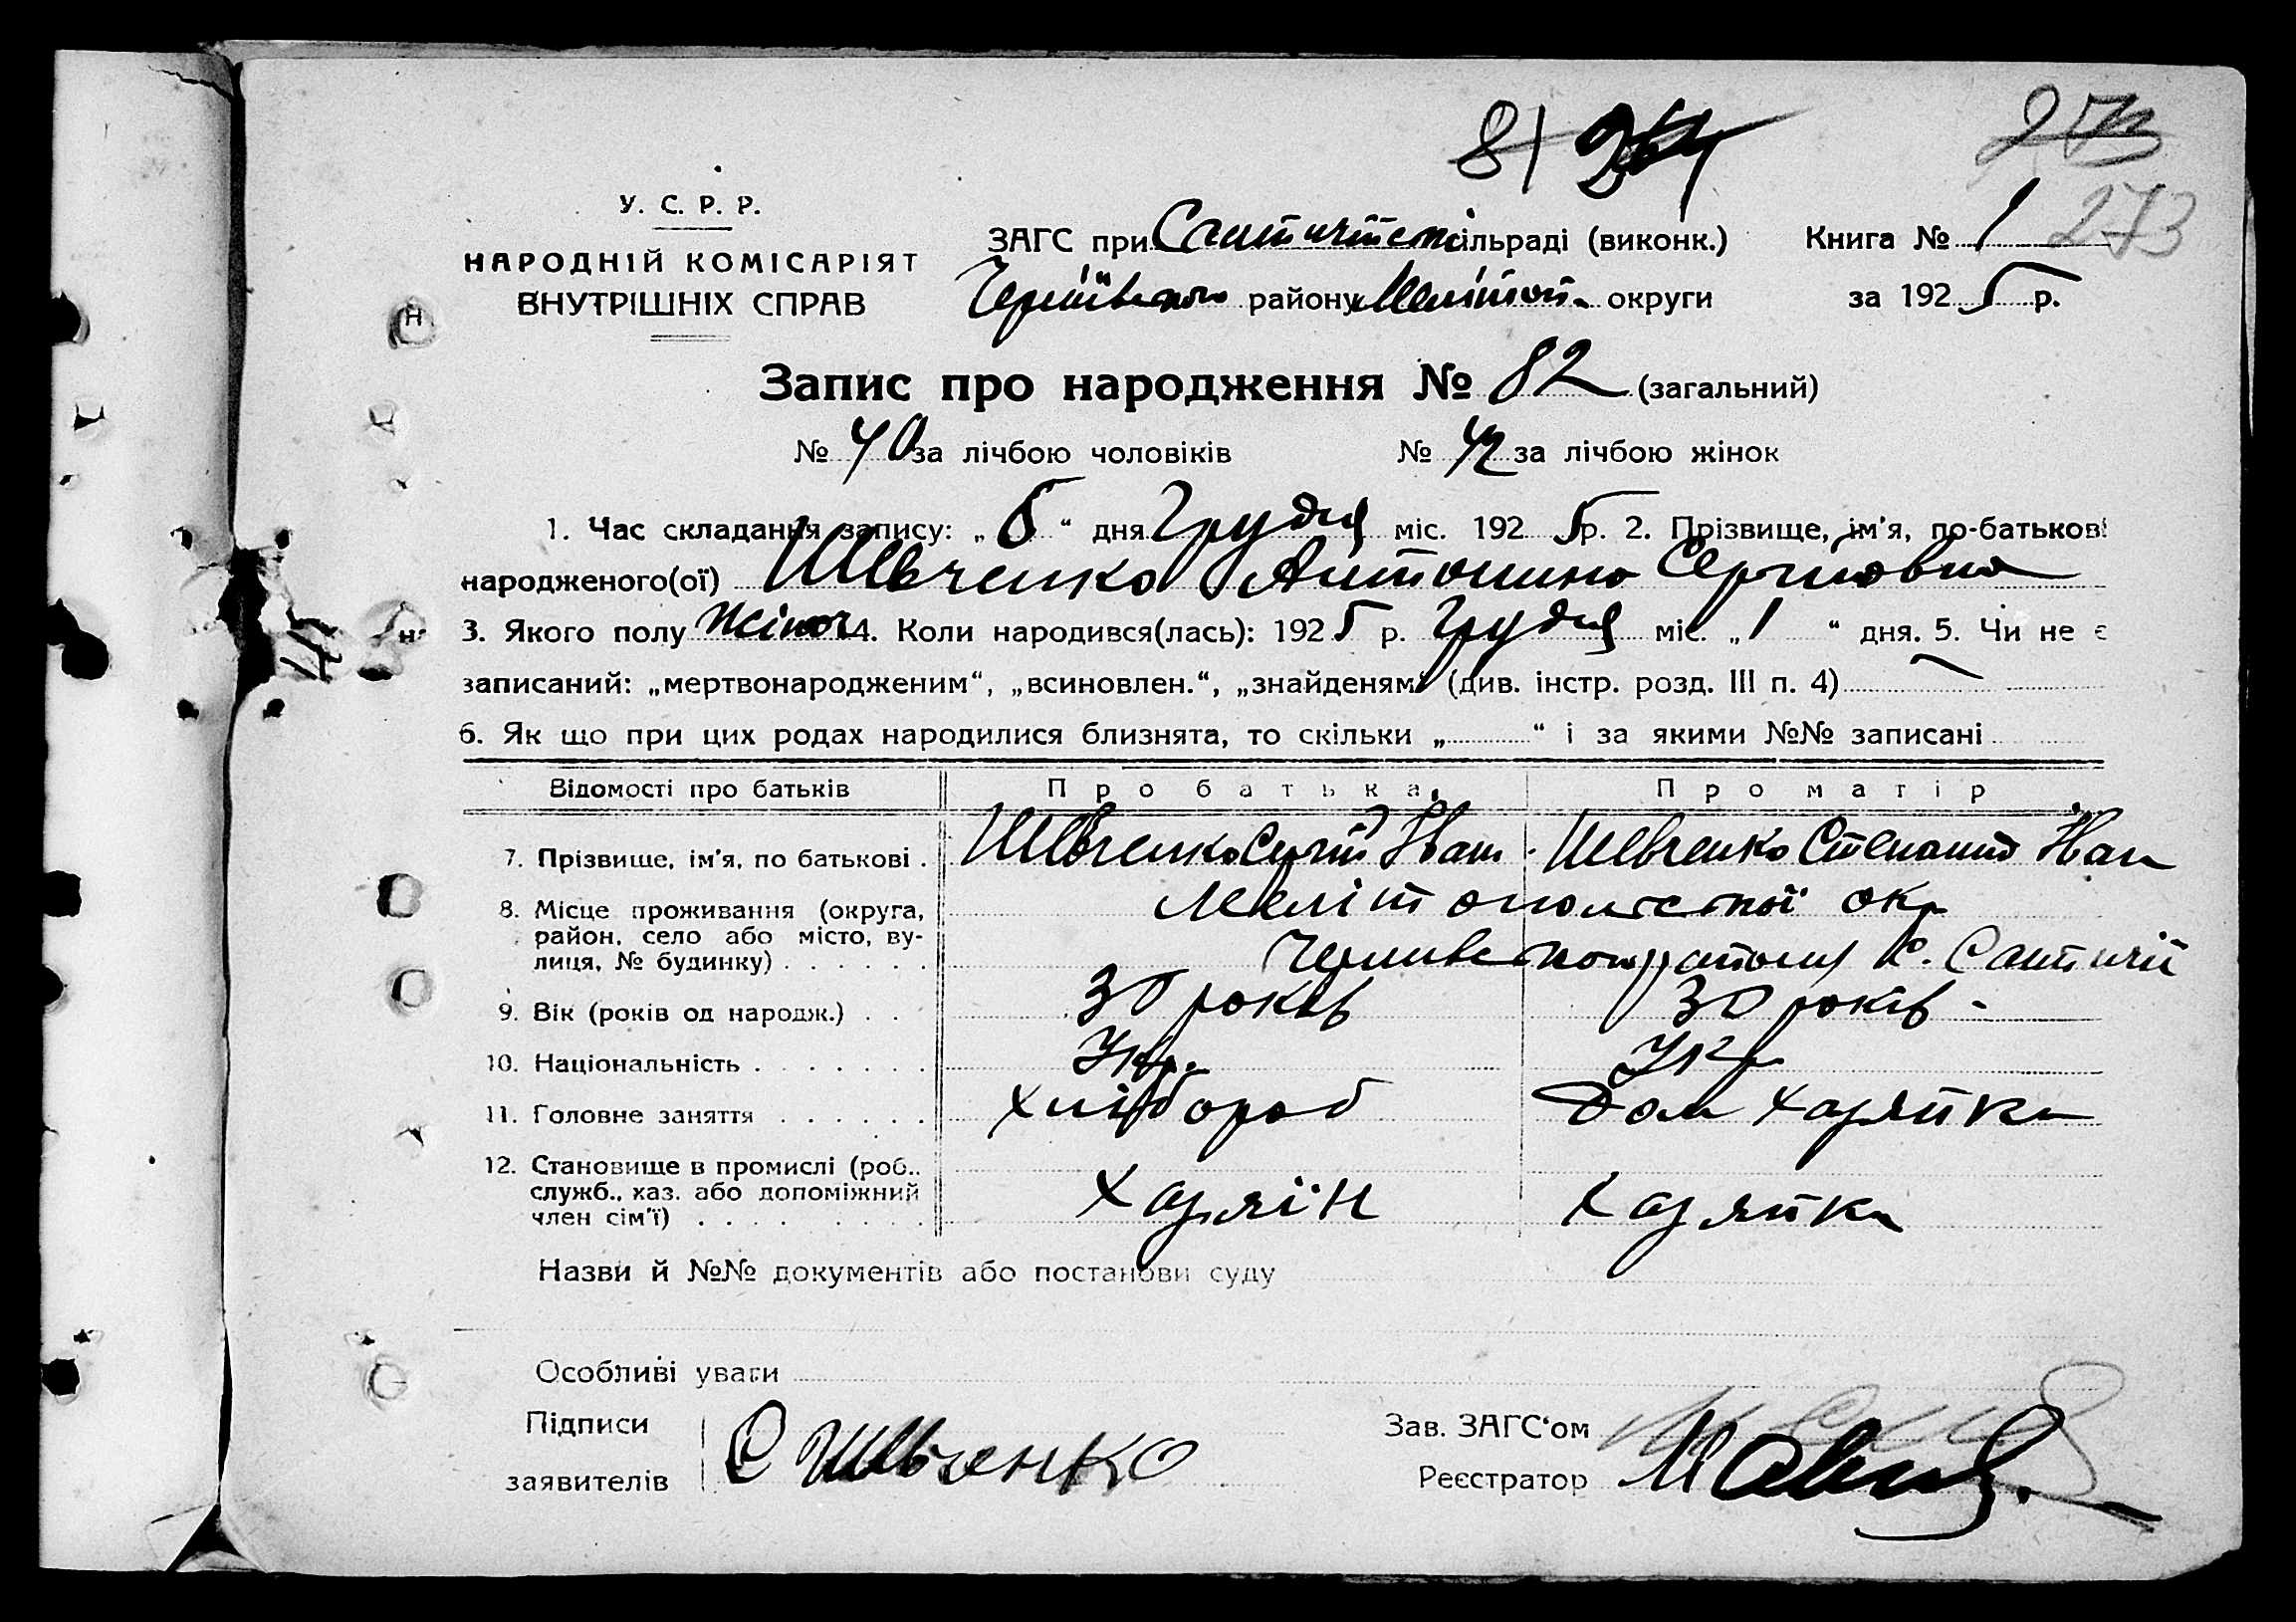 273
У. С. Р. Р.
НАРОДНІЙ КОМІСАРІЯТ
ВНУТРІШНІХ СПРАВ
ЗАГС при сільраді (виконк.) Книга № 1 273
району Меліто округи за 1925 р.
Запис про народження № 82 (загальний)
№ 40 за лічбою чоловіків № 42 за лічбою жінок
1. Час складання запису: „ “ дня Грудня міс. 1925 р. 2. Прізвище, ім'я, по-батькові
народженого(ої) Шевченко Антонина Сергиовна
3. Якого полу жіноч 4. Коли народився(лась): 1925 р. Грудня міс. „1“ дня. 5. Чи не є
записаний: „мертвонародженим“, „всиновлен.“, „знайденям“ (див. інстр. розд. III п. 4) —
6. Як що при цих родах народилися близнята, то скільки „ “ і за якими №№ записані
Відомості про батьків Про батька Про матір
7. Прізвище, ім'я, по батькові . Шевченко Сергій Іван Шевченко Степанид Іван
8. Місце проживання (округа, Мелітопольської окр
район, село або місто, ву-
лиця, № будинку) . . . . . . району с.
9. Вік (років од народж.) . . 30 років 30 років -
10. Національність . . . . . . . Укр. Укр
11. Головне заняття . . . . . . Хлібороб Дом хазяйка
12. Становище в промислі (роб.,
служб., хаз. або допоміжний Хазяїн Хазяйка
член сім'ї) . . . . . . . .
Назви й №№ документів або постанови суду
Особливі уваги
Підписи Зав. ЗАГС'ом
заявителів С Шевченко Реєстратор